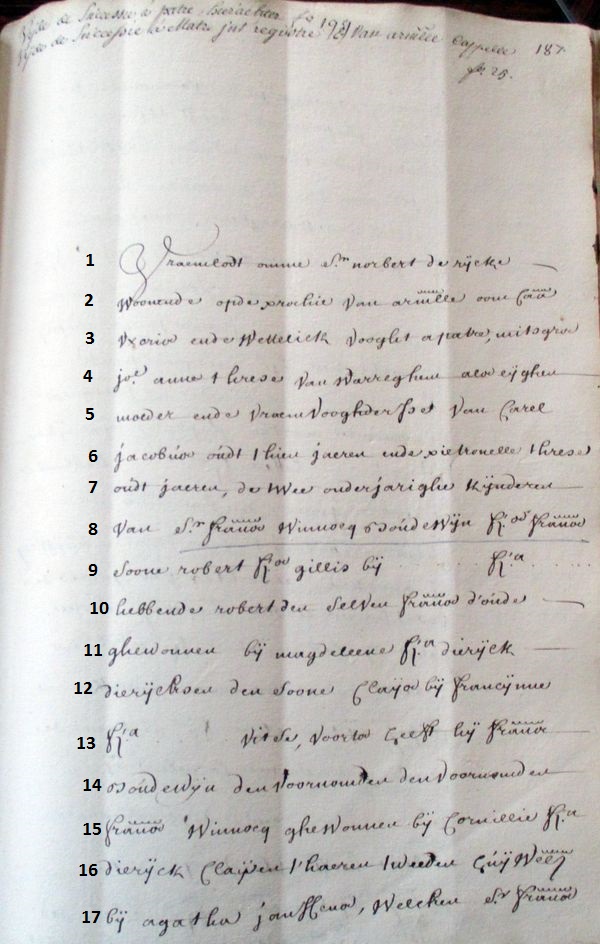 Vide de Successie à patre hier achter fo 192
Vide de Successie à Matre int registre van arm̄le Cappelle fo. 25.
187
1 Vraemlodt omme Sr. norbert de rijcke
2 Woonende opde prochie van arm̄le oom Caũ
3 Vxoris ende Wettelick Vooght a patre, mitsgrs
4 jo.e anne threse Van Warreghem als eijghen
5 moeder ende Vraem Vooghdersse Van Carel
6 jacobus oudt thien jaeren ende pietronelle threse
7 oudt jaeren, de twee onderjarighe Kijnderen
8 Van Sr. franõs Winnocq Boudewijn f.s d'hr franõs
9 Soone robert f.s gillis bij f.a
10 hebbende robert den Selven franõs d'oude
11 ghewonnen bij magdeleene f.a dierijck
12 dierijcksen den Soone Claijs bij francijnne
13 f.a Vitse, Voorts heeft bij franõs
14 Boudewijn den Voornomden den Voornomden
15 franõs Winnocq ghewonnen bij Cornillie f.a
16 dierijck Claijsen t'haeren tweeden huijWel.
17 bij agatha janssens, Welcken Sr. franõs